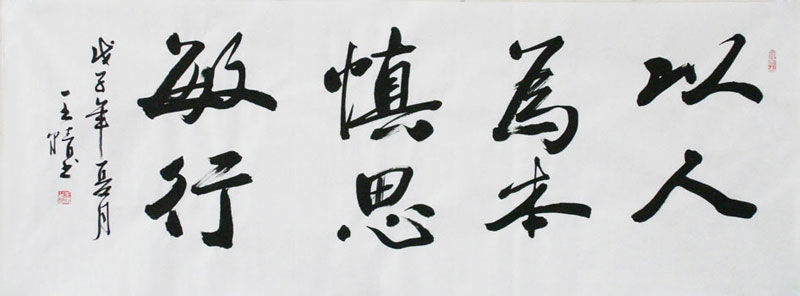 以人
為本
慎思
敏行
戊子年夏月
王书